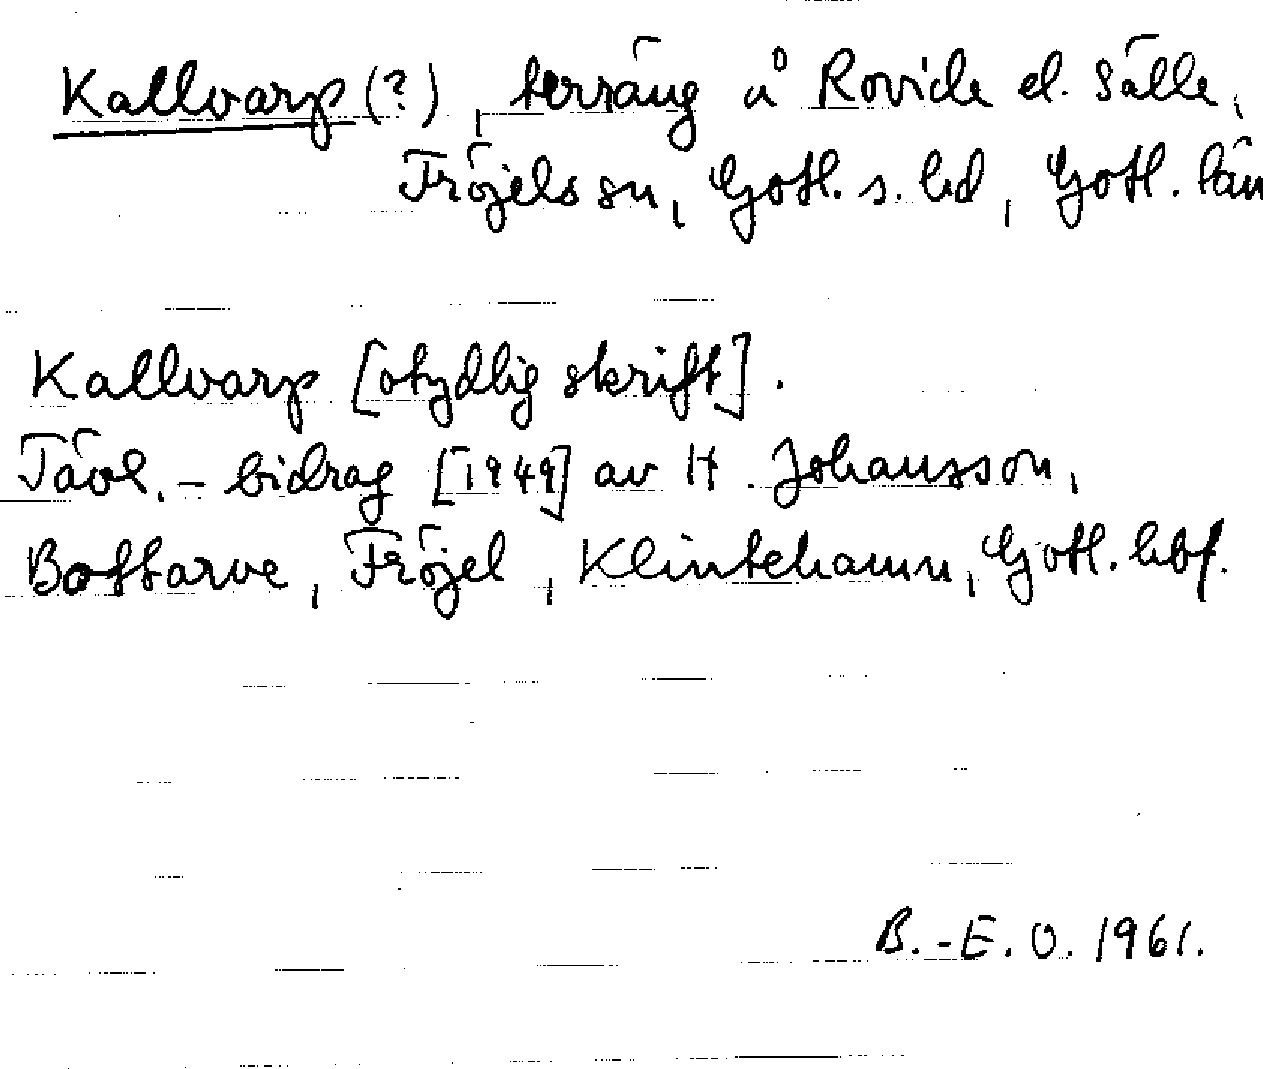 Kallvarp (?), terräng å Rovide el. Sälle,
Fröjels sn, Gotl. s. hd, Gotl. län
Kallvarp [otydlig skrift].
Tävl.-bidrag [1949] av H. Johansson,
Bottarve, Fröjel, Klintehamn, Gotl. hbf.
B.-E. O. 1961.